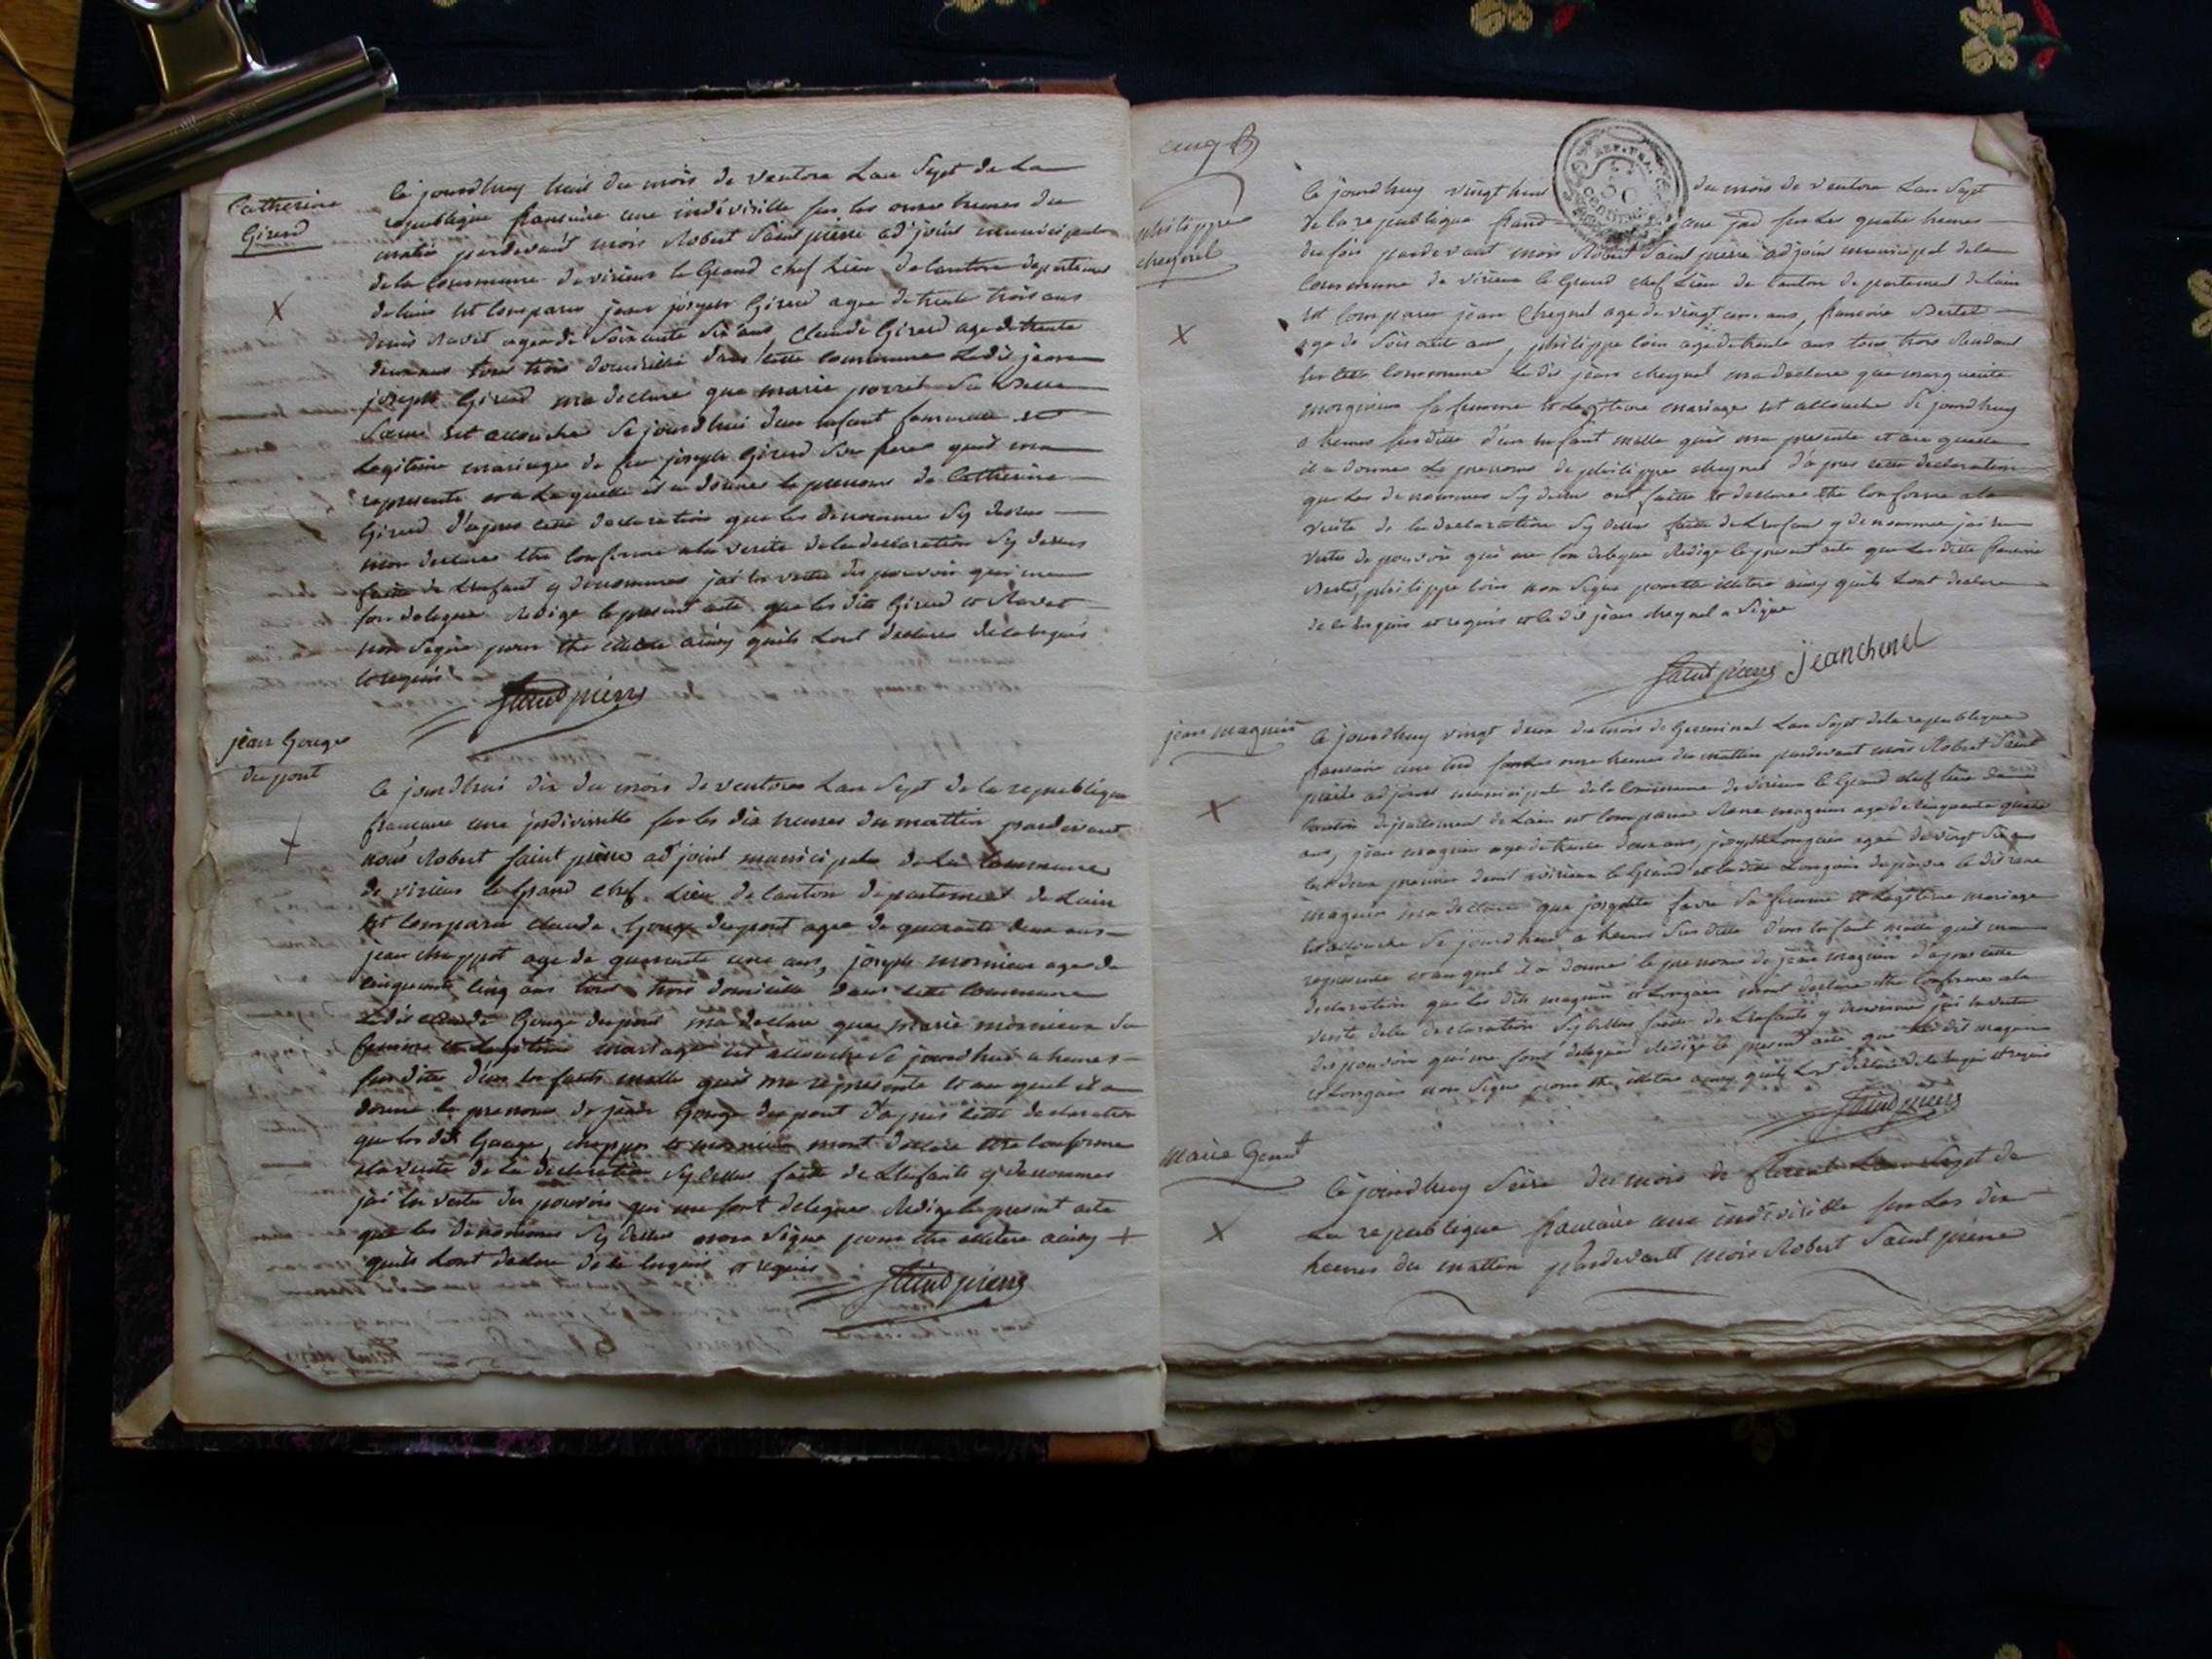 Catherine
Girerd
Ce jourdhuy huit du mois de ventose Lan Sept de La
republique francaise une indivisible sur les onze heures du
matin pardevant mois Robert Saint pierre adjoint municipale
de la commune de virieu le Grand chef Lieu de canton departement
de lain est comparu jean joseph Girerd agee de trente trois ans
denis Ravet agee de Soixante Six ans, Claude Girerd age de trente
deux ans tous trois domicillie dans cette commune Ledit jean
joseph Girerd ma declare que marie porret Sa Belle
Soeur est accouchee Se jourdhui dun enfant femmelle et
Legitime mariage de feu joseph Girerd Son frere quil ma
represente et a La quelle il a donner le prenoms de Catherine
Girerd d'apres cette declaration que les denommes Sy dessus
mon declares etre conforme a la verite de la declaration Sy dessus
faite de Lenfant y denommes jai en vertu des pouvoir qui me
son delegue Redige le present acte que les dits Girerd et Ravet
non Signe pour etre illetere ainsy quils Lont declares de ce enquis
et requis
Saint pierre
jean Gouge
du pont
Ce jourdhui dix du mois de ventose Lan Sept de la republique
francaise une jndivisible sur les dix heures du mattin pardevant
nous Robert Saint pierre adjoint municipale de La Commune
de virieu le Grand chef Lieu de canton departement de Lain
est comparu claude Gouge dupont agee de quarante deux ans
jean chappot age de quarante une ans, joseph mornieu age de
cinquante cinq ans tous trois domicille dans cette commune
Ledit claude Gouge dupont ma declare que marie mornieu Sa
femme et Legitime mariage est accouche Se jourdhui a heures
Susdite d'un enfants malle quil ma represente et au quel il a
donne le prenoms de jean Gouge du pont d'apres cette declaration
que les dit Gouge, chappot et mornieu mont declare etre conforme
a la verite de La declaration Sy dessus faite de Lenfants y denommes
jai en vertu des pouvoir qui me sont delegues Redige le present acte
que les denommes Sy dessus non Signe pour etre illetere ainsy
quils Lont declare de ce enquis et requis
Saint pierre
philippe
cheynel
Ce jourdhuy vingt huit du mois de ventose Lan Sept
de la republique franc une jnd sur Les quatre heures
du soir pardevant mois Robert Saint pierre adjoint municipal de la
Commune de virieu le Grand chef Lieu de canton departement de lain
est comparu jean Cheynel age de vingt ans, francoise Bertet
age de Soixante ans, philippe age de trente ans tous trois Residant
en cette Commune Ledit jean cheynel ma declare que marguerite
mornieu sa femme et Legitime mariage est accouche Se jourdhuy
a heures Susdite d'un enfant malle quil ma presente et au quelle
il a donner Le prenoms de philippe cheynel d'apres cette declaration
que Les denommes Sy dessus ont faitte et declares etre conforme a la
verite de la declaration Sy dessus faitte de Lenfant y denommee jai en
vertu de pouvoir qui me son delegue Redige le present acte que Les ditte francoise
Bertet, philippe non Signe pour etre illetere ainsy quils Lont declare
de ce enquis et requis et le dit jean cheynel a Signe
Saint pierre jean chenel
jean magnin
Ce jourdhuy vingt deux du mois de Germinal Lan Sept de la republique
francaise une ind sur les onze heures du mattin pardevant mois Robert Saint
pierre adjoint municipale de la Commune de virieu le Grand chef lieu de
canton departement de Lain est comparu Rene magnin age de cinquante quatre
ans, jean magnin age de trente deux ans, joseph Longain agee de vingt Six ans
Les deux premier de virieu le Grand et le dit Longain Le dit rene
magnin ma declare que josephte favre Sa femme et Legitime mariage
est accouche Se jourdhui a heures Susdite d'un enfant malle quil ma
represente et au quel il a donner le prenoms de jean magnin d'apres cette
declaration que Les dits magnin et Longain mont declare etre conforme a la
verite de la declaration Sy dessus faite de Lenfants y denommee jai en vertu
des pouvoir qui me sont delegues Redige le present acte que Ledit magnin
et Longain non Signe pour etre illetere ainsy quils Lont declare de ce enquis et requis
Saint pierre
Marie Genet
Ce jourdhuy Seize du mois de floreal Lan Sept de
La republique francaise une indivisible sur Les dix
heures du mattin pardevant mois Robert Saint pierre